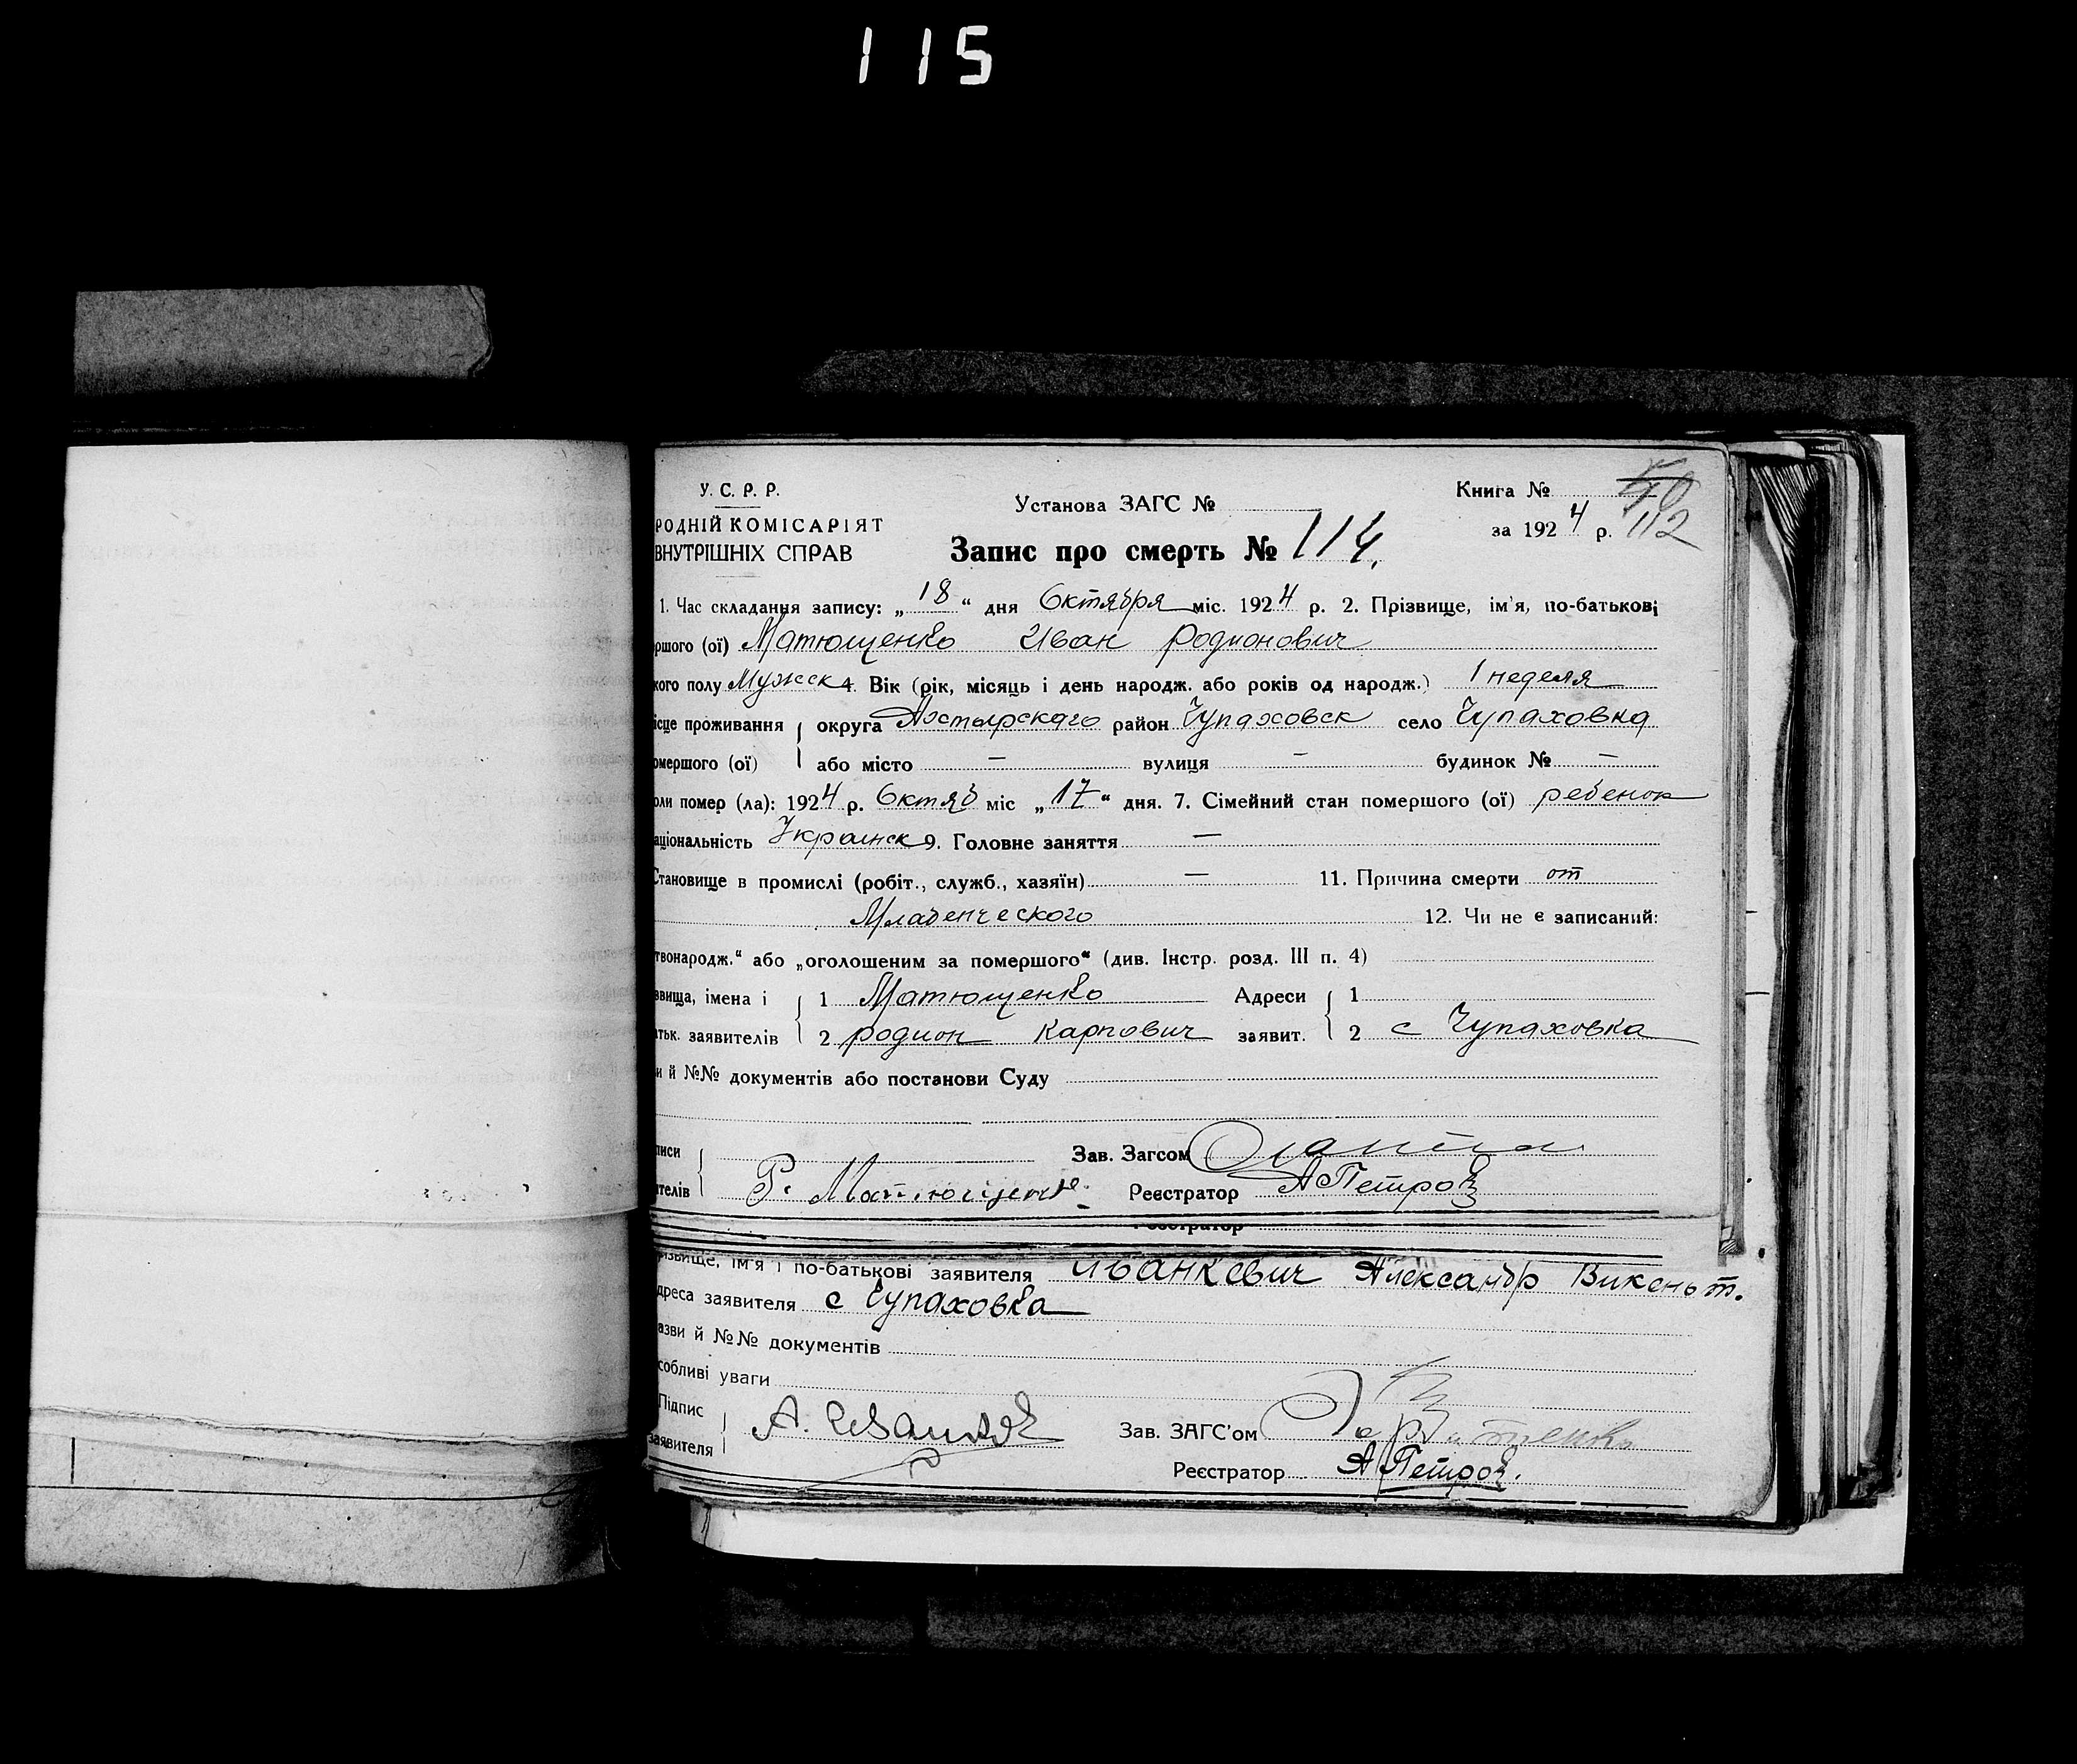 115
У. С. Р. Р.
РОДНІЙ КОМІСАРІЯТ
ВНУТРІШНІХ СПРАВ
Установа ЗАГС №
Книга №
за 1924 р. 112
Запис про смерть № 114.
1. Час складання запису: „18“ дня Октября міс. 1924 р. 2. Прізвище, ім'я, по-батькові
ршого (ої) Матющенко Иван Родионович
кого полу Мужск 4. Вік (рік, місяць і день народж. або років од народж.) 1 неделя
ісце проживання округа Ахтырскаго район Чупаховск село Чупаховка
омершого (ої) або місто — вулиця — будинок № —
оли помер (ла): 1924 р. Октяб міс „17“ дня. 7. Сімейний стан помершого (ої) ребенок
аціональність Украинск 9. Головне заняття —
Становище в промислі (робіт., служб., хазяїн) — 11. Причина смерти от
Младенческого 12. Чи не є записаний:
твонародж.“ або „оголошеним за помершого“ (див. Інстр. розд. III п. 4)
звища, імена і 1 Матющенко Адреси 1
атьк. заявителів 2 родион Карпович заявит. 2 с Чупаховка
и й №№ документів або постанови Суду
писи Зав. Загсом
ителів Р. Матющенко Реєстратор АПетров
Реєстратор
різвище, ім'я і по-батькові заявителя Иванкевич Александр Викеньт.
дреса заявителя с Чупаховка
азви й №№ документів
собливі уваги
Підпис
заявителя А. Зав. ЗАГС'ом
Реєстратор АПетров.